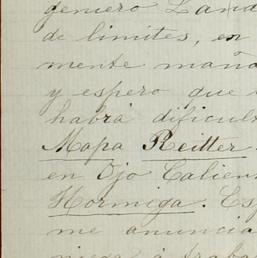 geniero Land
de limites, en
mente maña
y espero que
habrá dificult
Mapa Reitter
en Ojo Calien
Hormiga. Esp
me anuncia